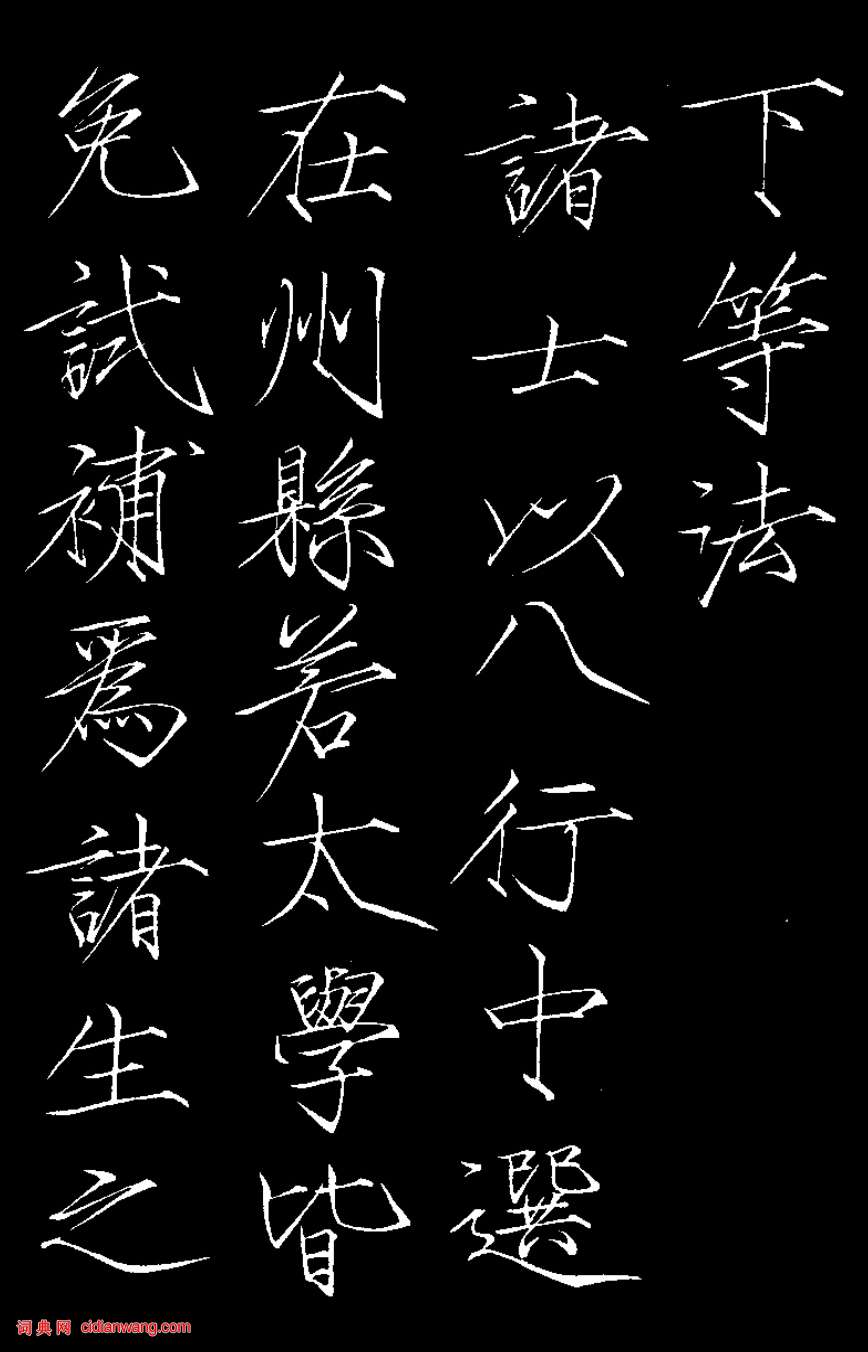 下等法
諸士以八行中選
在州縣若太學皆
免試補爲諸生之
词典网 cidianwang.com